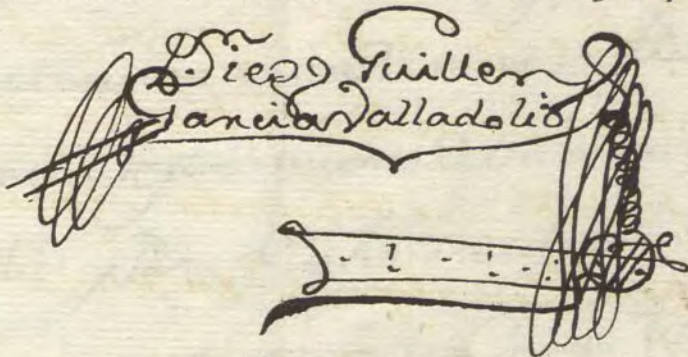 Dn Diego Guillen
Garcia Valladolid